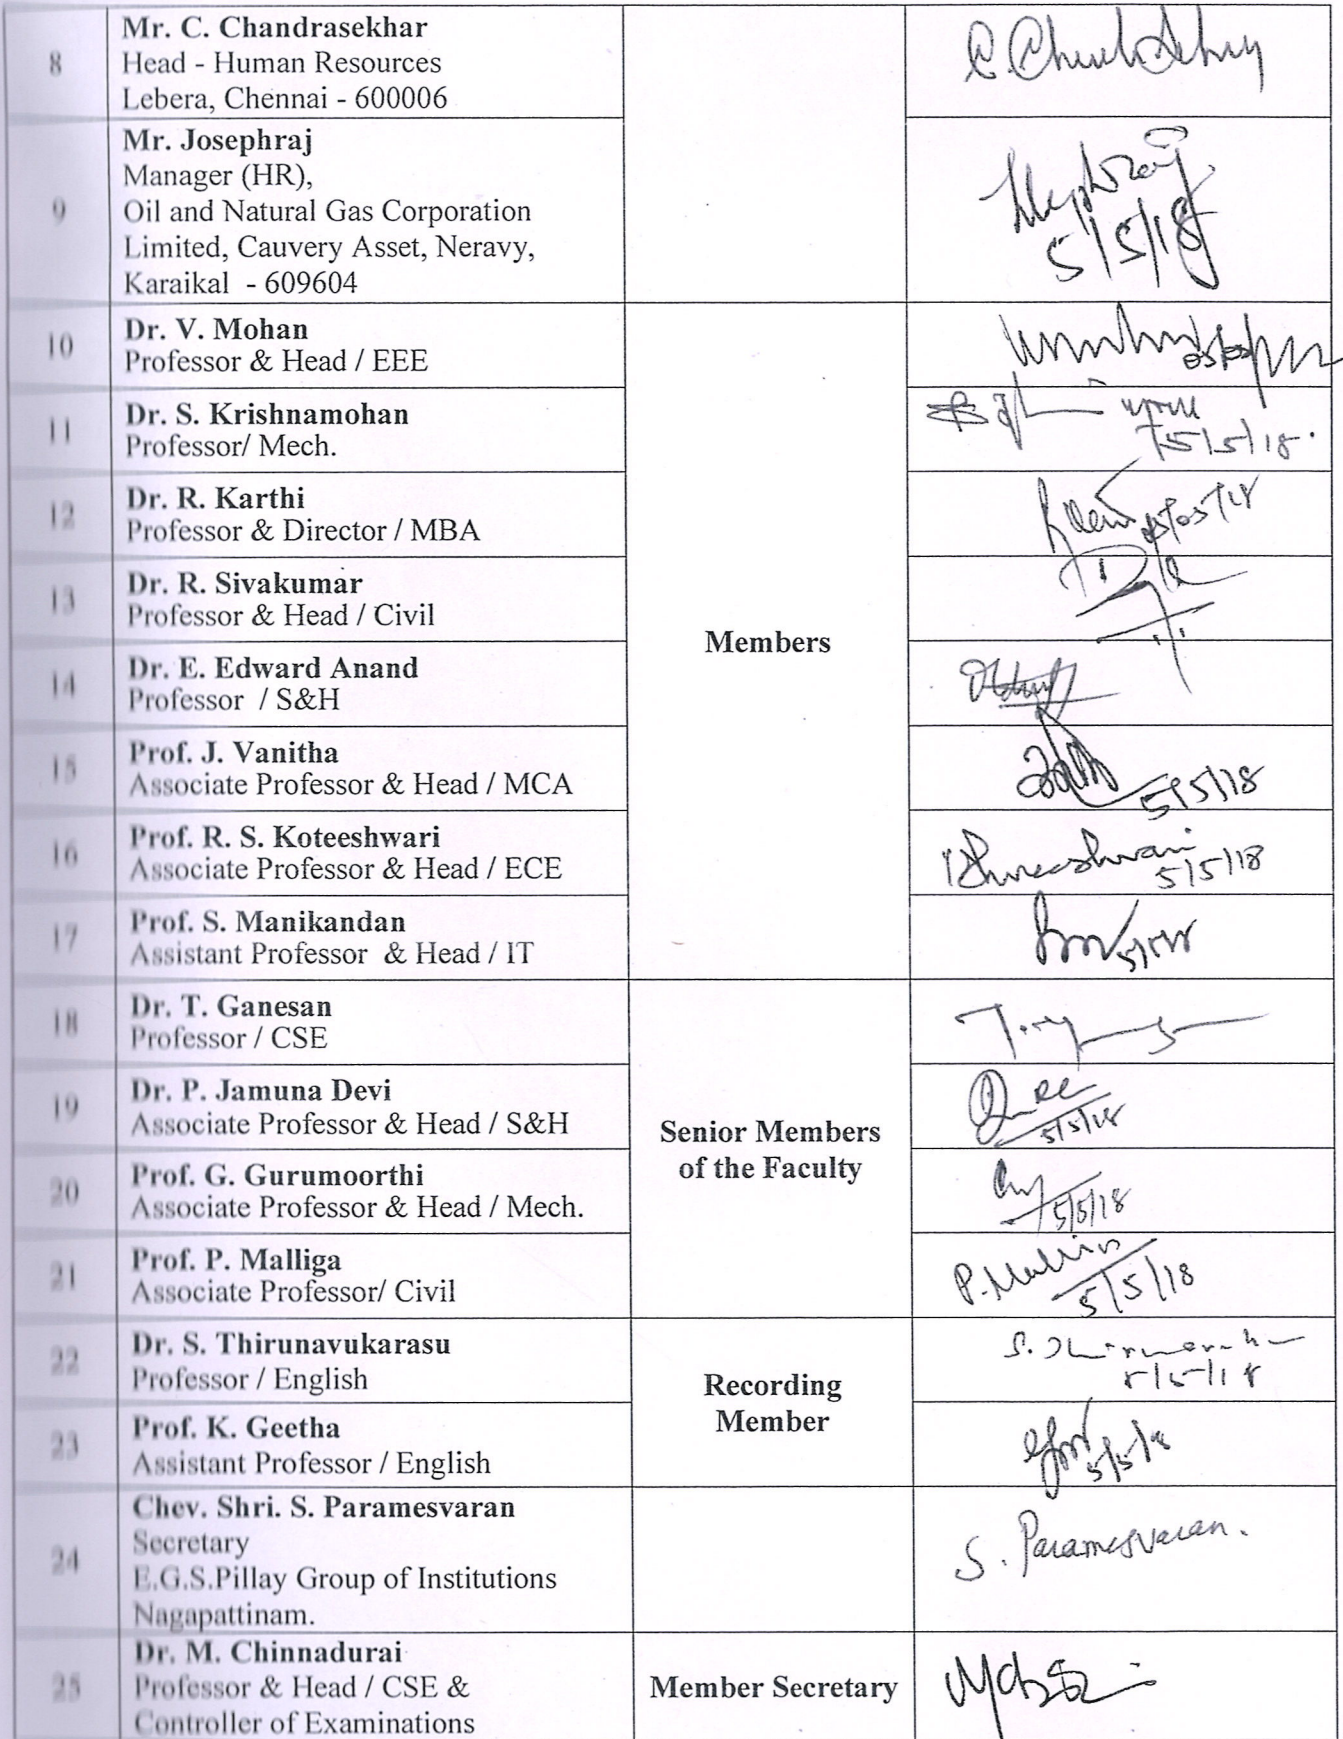 8
Mr. C. Chandrasekhar
Head - Human Resources
Lebera, Chennai - 600006
C. Chandrasekhar
9
Mr. Josephraj
Manager (HR),
Oil and Natural Gas Corporation
Limited, Cauvery Asset, Neravy,
Karaikal - 609604
5/5/18
10
Dr. V. Mohan
Professor & Head / EEE
11
Dr. S. Krishnamohan
Professor/ Mech.
5/5/18.
12
Dr. R. Karthi
Professor & Director / MBA
05/05/18
13
Dr. R. Sivakumar
Professor & Head / Civil
Members
14
Dr. E. Edward Anand
Professor / S&H
15
Prof. J. Vanitha
Associate Professor & Head / MCA
5/5/18
16
Prof. R. S. Koteeshwari
Associate Professor & Head / ECE
5/5/18
17
Prof. S. Manikandan
Assistant Professor & Head / IT
5/5/18
18
Dr. T. Ganesan
Professor / CSE
19
Dr. P. Jamuna Devi
Associate Professor & Head / S&H
5/5/18
Senior Members
of the Faculty
20
Prof. G. Gurumoorthi
Associate Professor & Head / Mech.
5/5/18
21
Prof. P. Malliga
Associate Professor/ Civil
P. Malliga
5/5/18
22
Dr. S. Thirunavukarasu
Professor / English
5/5/18
Recording
Member
23
Prof. K. Geetha
Assistant Professor / English
5/5/18
24
Chev. Shri. S. Paramesvaran
Secretary
E.G.S.Pillay Group of Institutions
Nagapattinam.
S. Paramesvaran.
25
Dr. M. Chinnadurai
Professor & Head / CSE &
Controller of Examinations
Member Secretary